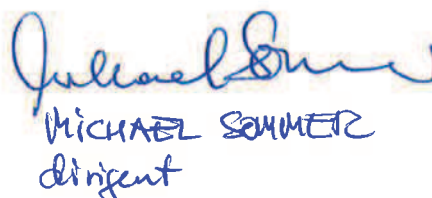 Michael Sommer
MICHAEL SOMMER
dirigent